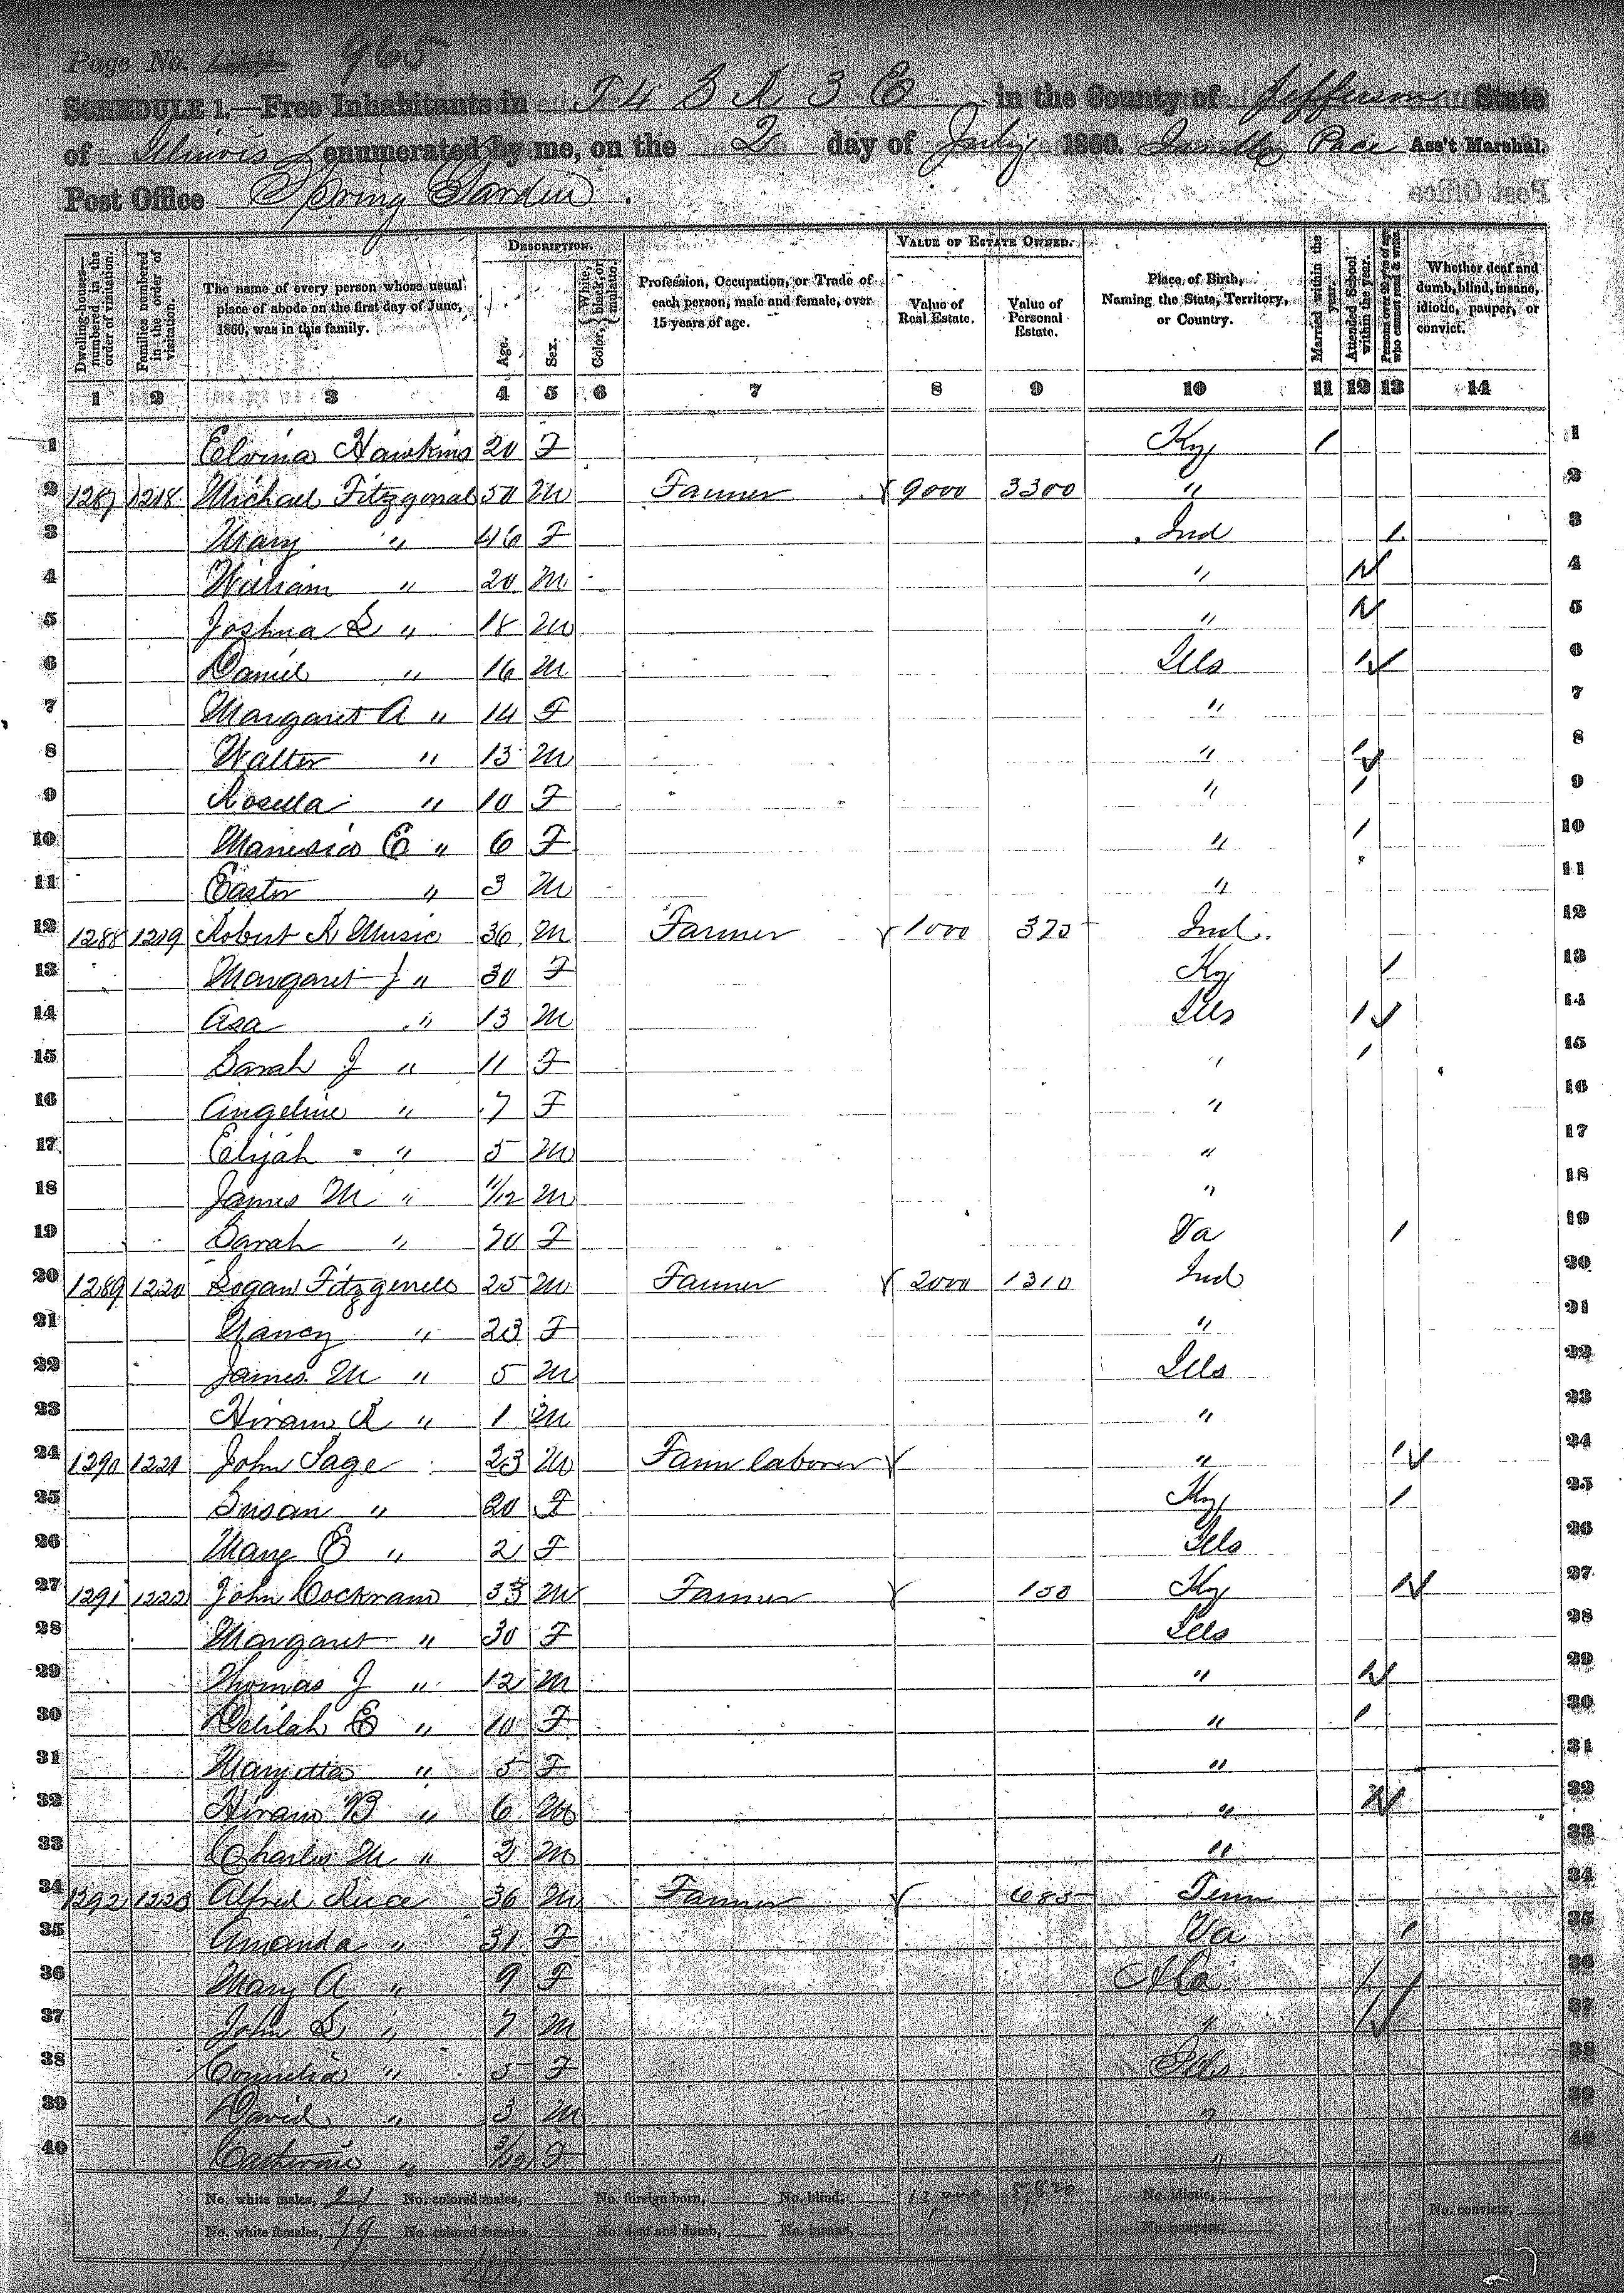 Page No. 122 965
SCHEDULE 1.—Free Inhabitants in T 4 S R 3 E in the County of Jefferson State
of Illinois enumerated by me, on the 2 day of July 1860. Pace Ass't Marshal.
Post Office Spring Garden.
DESCRIPTION. VALUE OF ESTATE OWNED.
Dwelling-houses—numbered in the order of visitation. Families numbered in the order of visitation. The name of every person whose usual place of abode on the first day of June, 1860, was in this family. Age. Sex. Color, White, black, or mulatto. Profession, Occupation, or Trade of each person, male and female, over 15 years of age. Value of Real Estate. Value of Personal Estate. Place of Birth, Naming the State, Territory, or Country. Married within the year. Attended School within the year. Persons over 20 y'rs of age who cannot read & write. Whether deaf and dumb, blind, insane, idiotic, pauper, or convict.
1 2 3 4 5 6 7 8 9 10 11 12 13 14
1 Elvina Hawkins 20 F Ky / 1
2 1287 1218 Michael Fitzgeral 50 M Farmer 9000 3300 " 2
3 Mary " 46 F Ind / 3
4 William " 20 M " / 4
5 Joshua L " 18 M " / 5
6 Daniel " 16 M Ills / 6
7 Margaret A " 14 F " 7
8 Walter " 13 M " / 8
9 Rosella " 10 F " / 9
10 E " 6 F " / 10
11 Easter " 3 M " 11
12 1288 1219 Robert R Music 36 M Farmer 1000 325 Ind. 12
13 Margaret J " 30 F Ky / 13
14 Asa " 13 M Ills / 14
15 Sarah J " 11 F " / 15
16 Angeline " 7 F " 16
17 Elijah " 5 M " 17
18 James M " 11/12 M " 18
19 Sarah " 70 F Va / 19
20 1289 1220 Logan Fitzgerrell 25 M Farmer 2000 1310 Ind 20
21 Nancy " 23 F " 21
22 James M " 5 M Ills 22
23 Hiram R " 1 M " 23
24 1290 1221 John Sage 23 M Farm laborer " / 24
25 Susan " 20 F Ky / 25
26 Mary E " 2 F Ills 26
27 1291 1222 John Cockram 33 M Farmer 150 Ky / 27
28 Margaret " 30 F Ills 28
29 Thomas J " 12 M " / 29
30 Delilah E " 10 F " / 30
31 Maryetta " 5 F " 31
32 Hiram B " 6 M " / 32
33 Charles M " 2 M " 33
34 1292 1223 Alfred Rice 36 M Farmer 685 Tenn 34
35 Amanda " 31 F Va / 35
36 Mary A " 9 F Ala / 36
37 John L " 7 M " / 37
38 Cornelia " 5 F Ills 38
39 David " 3 M " 39
40 Catherine " 3/12 F " 40
No. white males, 21 No. colored males, No. foreign born, No. blind, 12,000 5,820 No. idiotic,
No. white females, 19 No. colored females, No. deaf and dumb, No. insane, No. paupers, No. convicts,
40